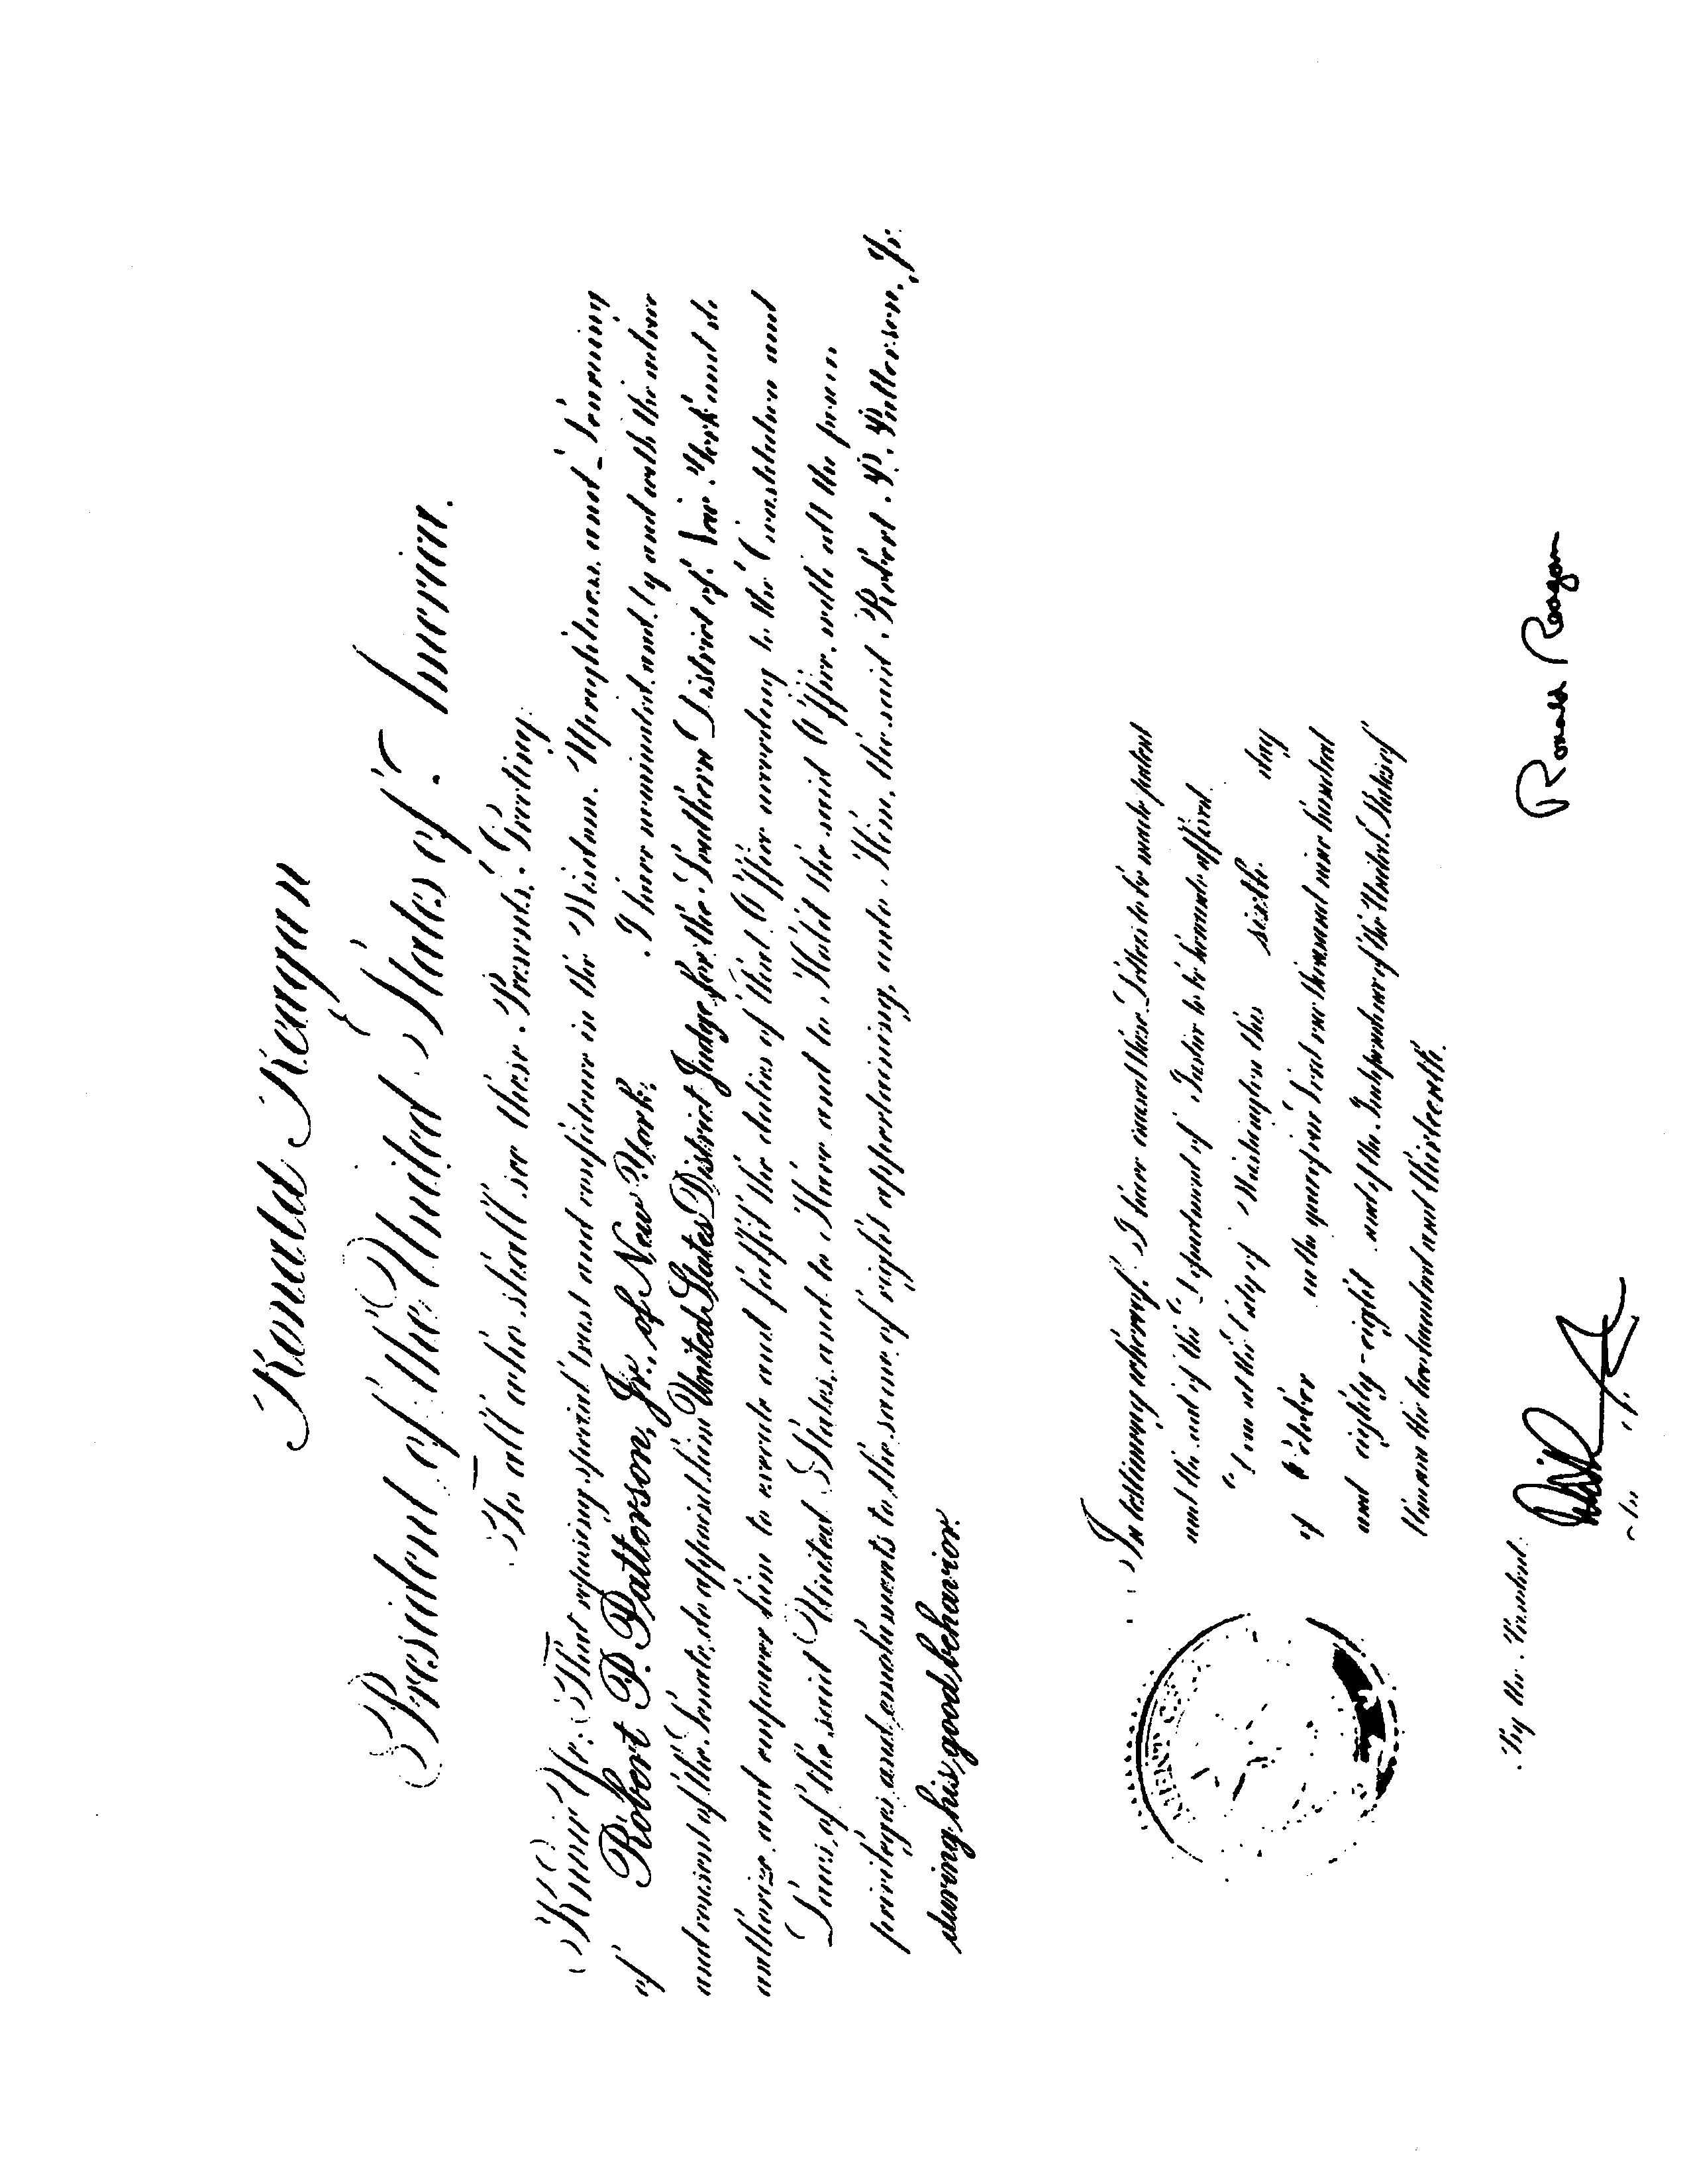 Ronald Reagan
President of the United States of America.
To all who shall see these Presents, Greeting:
Know Ye; That reposing special trust and confidence in the Wisdom, Uprightness, and Learning
of Robert P. Patterson, Jr., of New York, I have nominated, and, by and with the advice
and consent of the Senate, do appoint him United States District Judge for the Southern District of New York and do
authorize and empower him to execute and fulfil the duties of that Office according to the Constitution and
Laws of the said United States, and to Have and to Hold the said Office, with all the powers,
privileges, and emoluments to the same of right appertaining, unto Him, the said Robert P. Patterson, Jr.
during his good behavior.
In testimony whereof, I have caused these Letters to be made patent
and the seal of the Department of Justice to be hereunto affixed.
Done at the City of Washington this sixth day
of October in the year of our Lord one thousand nine hundred
and eighty-eight and of the Independence of the United States of
America the two hundred and thirteenth.
Ronald Reagan
By the President: